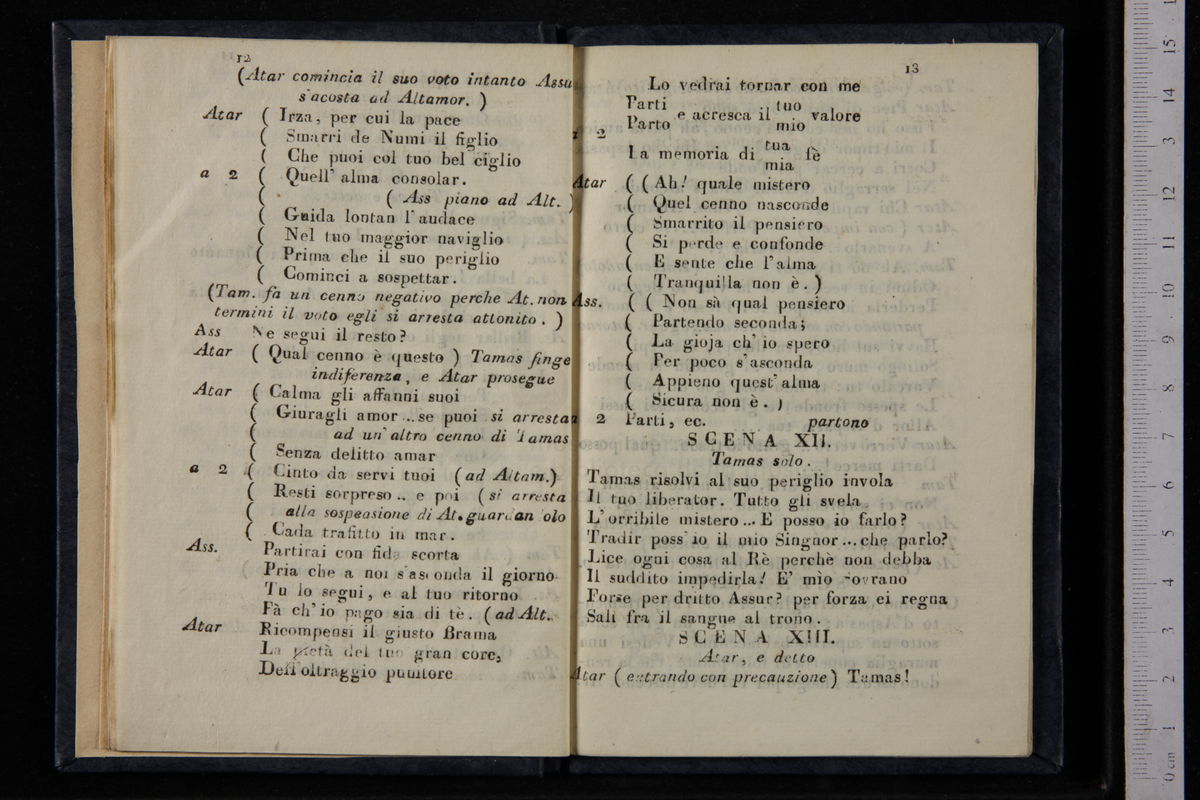 12
(Atar comincia il suo voto intanto Assu
s'acosta ad Altamor. )
Atar ( Irza, per cui la pace
( Smarri de Numi il figlio
( Che puoi col tuo bel ciglio
a 2 ( Quell' alma consolar.
( ( Ass piano ad Alt. )
( Guida lontan l'audace
( Nel tuo maggior naviglio
( Prima che il suo periglio
( Cominci a sospettar.
(Tam. fa un cenno negativo perche At. non
termini il voto egli si arresta attonito. )
Ass Ne segui il resto?
Atar ( Qual cenno è questo ) Tamas finge
indiferenza, e Atar prosegue
Atar ( Calma gli affanni suoi
( Giuragli amor ... se puoi si arresta
( ad un' altro cenno di Tamas
( Senza delitto amar
a 2 ( Cinto da servi tuoi (ad Altam.)
( Resti sorpreso .. e poi (si arresta
( alla sospensione di At. guardan olo
( Cada trafitto in mar.
Ass. Partirai con fida scorta
Pria che a noi s'asconda il giorno
Tu lo segui, e al tuo ritorno
Fà ch'io pago sia di tè. (ad Alt.
Atar Ricompensi il giusto Brama
La pietà del tuo gran core,
Dell'oltraggio punitore
13
Lo vedrai tornar con me
Parti e acresca il tuo valore
Parto mio
a 2
La memoria di tua fè
mia
Atar ( ( Ah! quale mistero
( Quel cenno nasconde
( Smarrito il pensiero
( Si perde e confonde
( E sente che l'alma
( Tranquilla non è. )
Ass. ( ( Non sà qual pensiero
( Partendo seconda;
( La gioja ch' io spero
( Per poco s'asconda
( Appieno quest' alma
( Sicura non è. )
a 2 Parti, ec. partono
SCENA XII.
Tamas solo.
Tamas risolvi al suo periglio invola
Il tuo liberator. Tutto gli svela
L'orribile mistero ... E posso io farlo?
Tradir poss' io il mio Singnor ... che parlo?
Lice ogni cosa al Rè perchè non debba
Il suddito impedirla! E' mìo sovrano
Forse per dritto Assur? per forza ei regna
Salì fra il sangue al trono.
SCENA XIII.
Atar, e detto
Atar ( entrando con precauzione) Tamas!